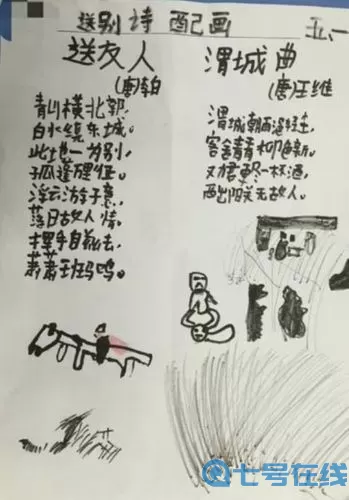 送别诗 配画
五、一
送友人
(唐)李白
青山横北郭,
白水绕东城。
此地一为别,
孤蓬万里征。
浮云游子意,
落日故人情,
挥手自兹去,
萧萧班马鸣。
渭城曲
(唐)王维
渭城朝雨浥轻尘,
客舍青青柳色新。
劝君更尽一杯酒,
西出阳关无故人。
七号在线